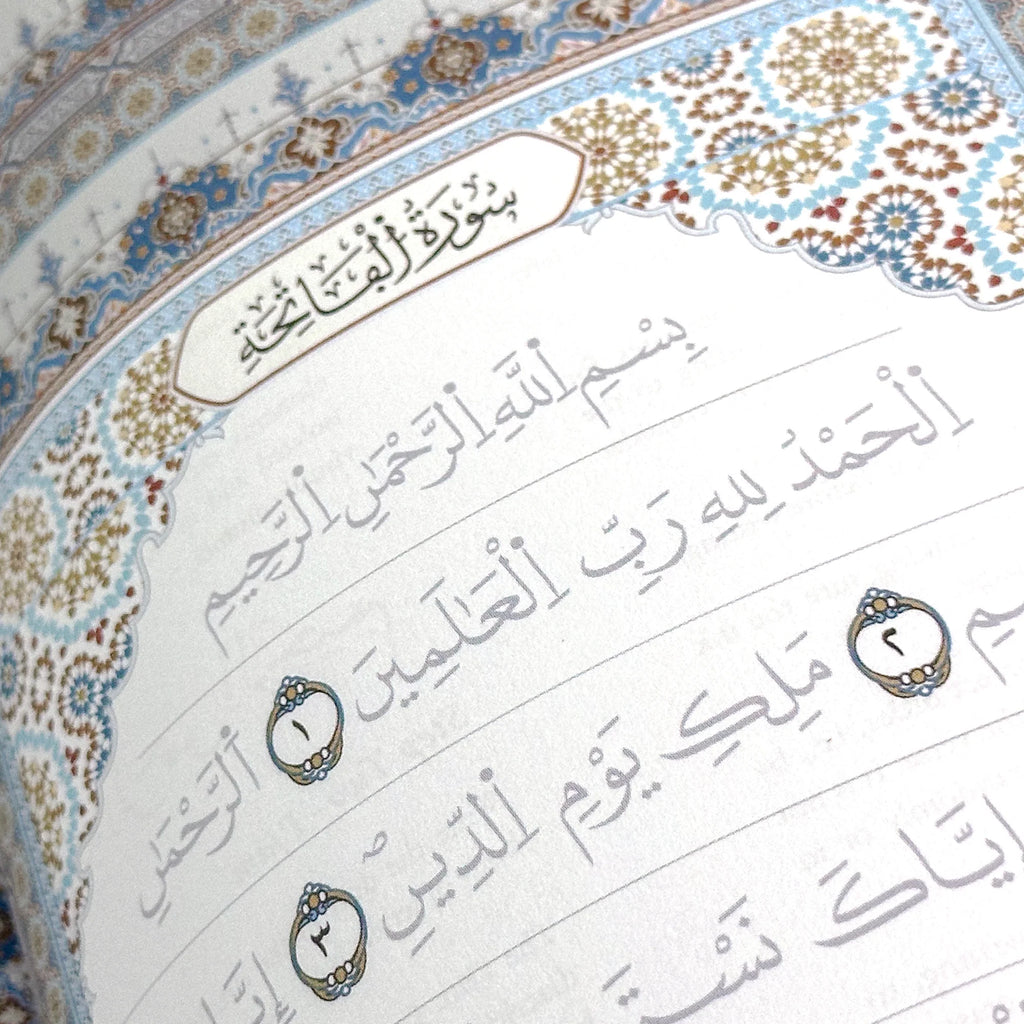 سُورَةُ ٱلْفَاتِحَةِ
بِسْمِ ٱللَّهِ ٱلرَّحْمَٰنِ ٱلرَّحِيمِ
ٱلْحَمْدُ لِلهِ رَبِّ ٱلْعَٰلَمِينَ ١ ٱلرَّحْمَٰنِ
ٱلرَّحِيمِ ٢ مَلِكِ يَوْمِ ٱلدِّينِ ٣ إِيَّاكَ
إِيَّاكَ